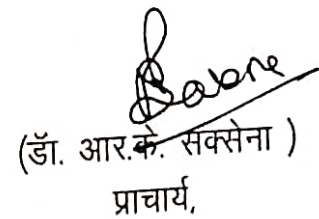 (डॉ. आर.के. सक्सेना )
प्राचार्य,